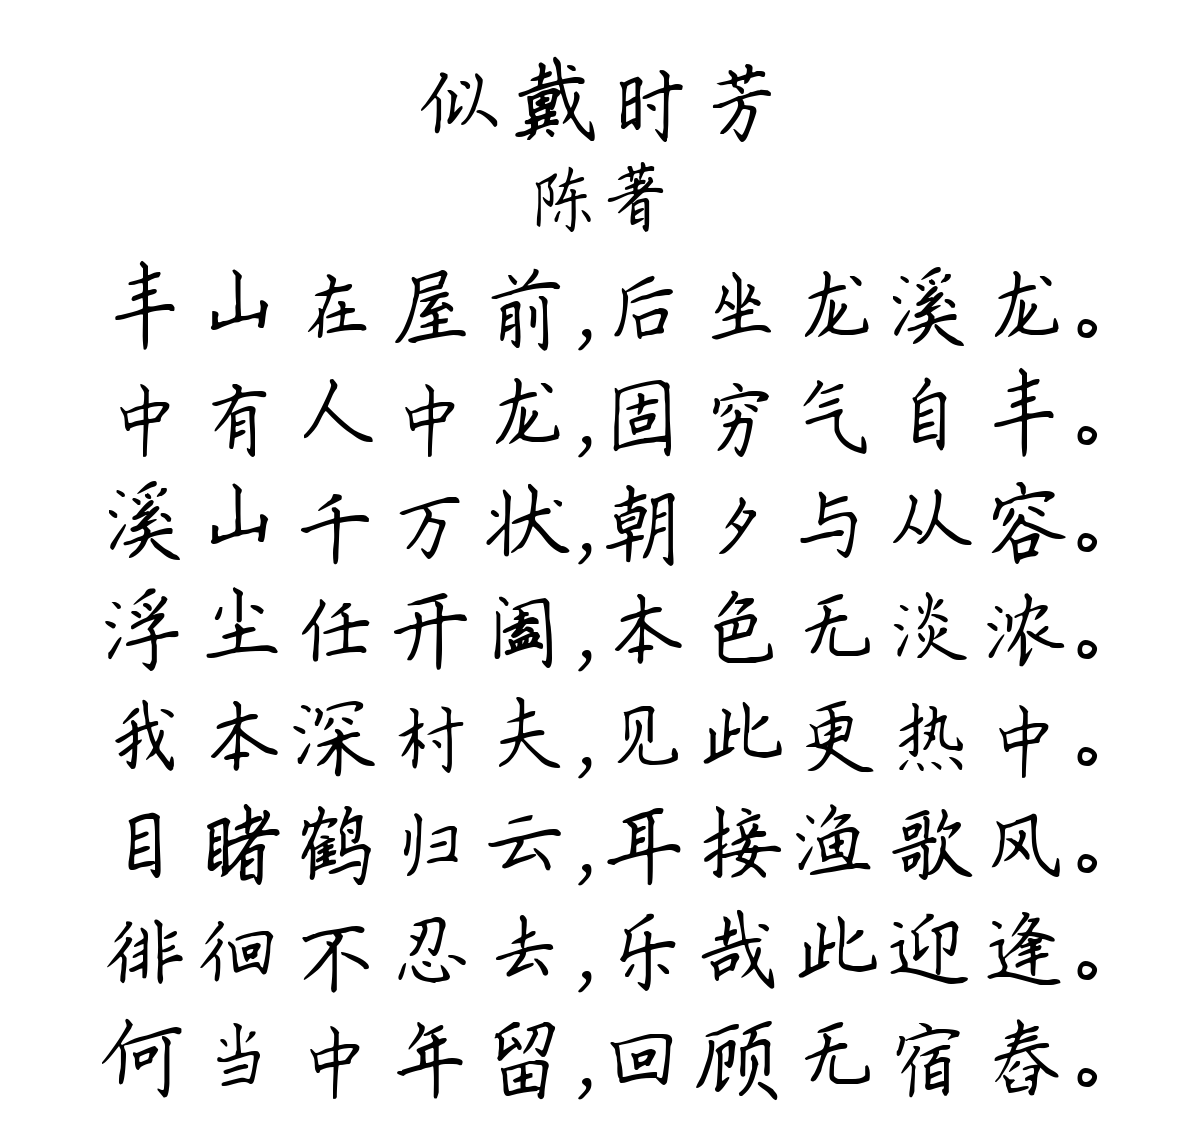 似戴时芳
陈著
丰山在屋前,后坐龙溪龙。
中有人中龙,固穷气自丰。
溪山千万状,朝夕与从容。
浮尘任开阖,本色无淡浓。
我本深村夫,见此更热中。
目睹鹤归云,耳接渔歌风。
徘徊不忍去,乐哉此迎逢。
何当中年留,回顾无宿舂。